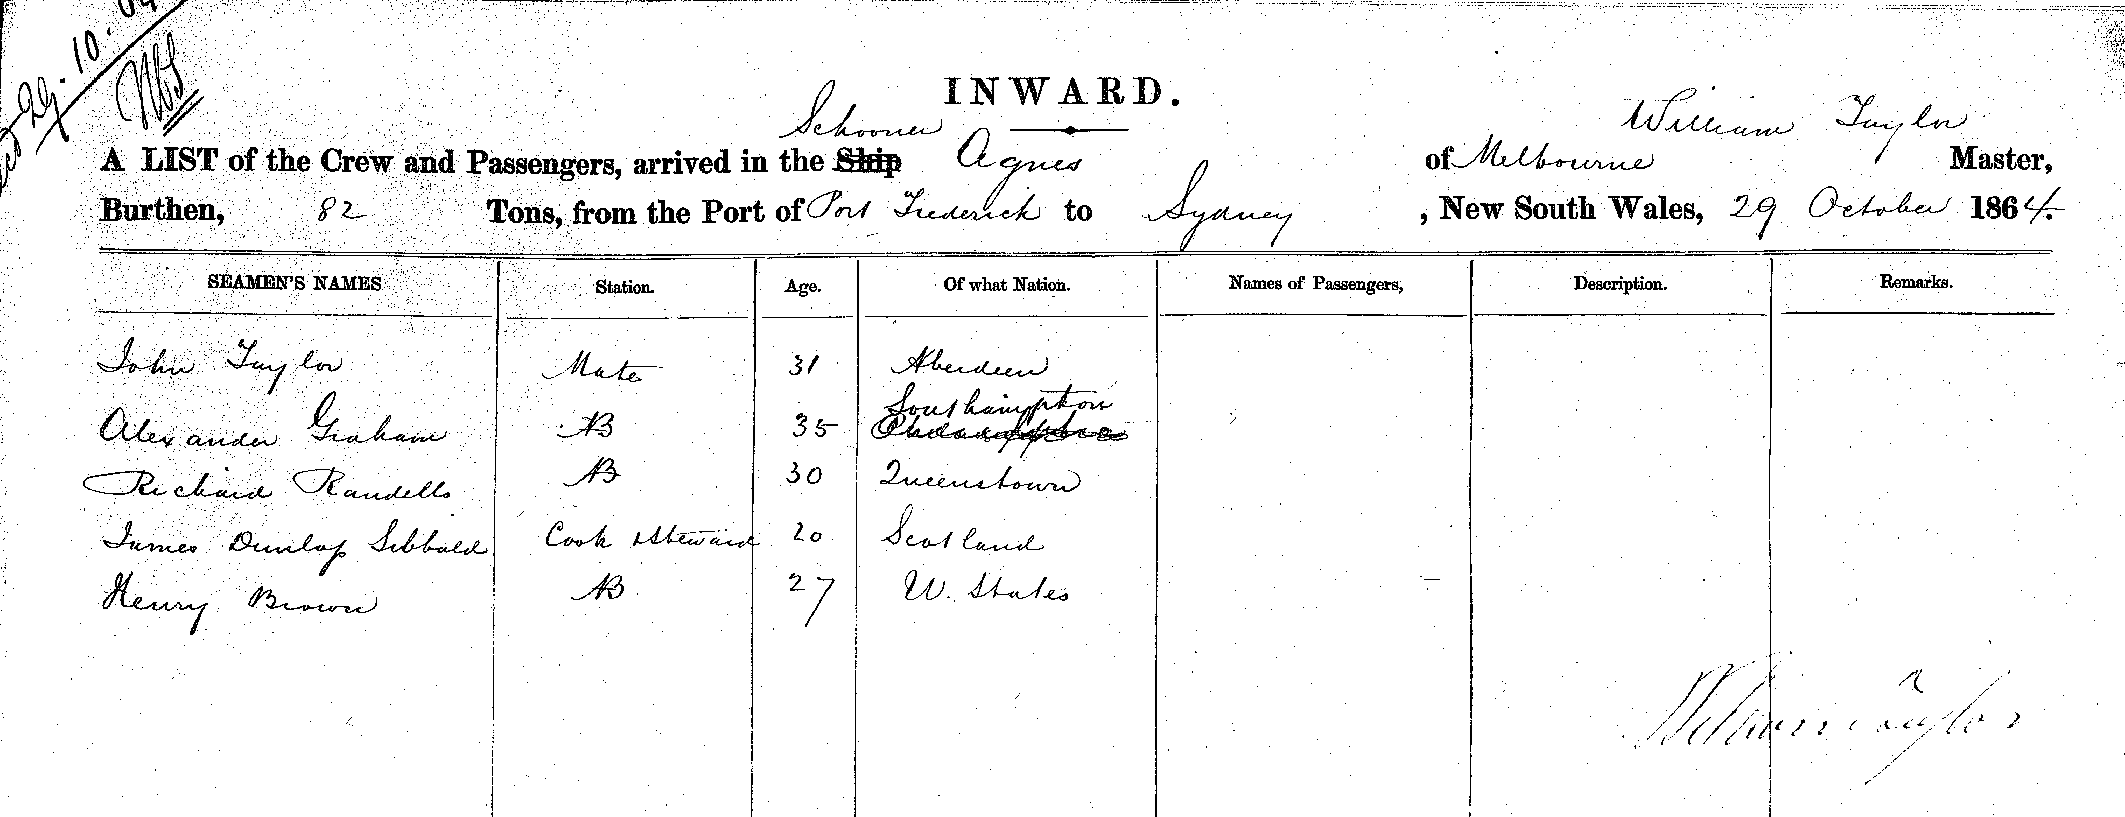 29.10.64
INWARD.
Schooner William Taylor
A LIST of the Crew and Passengers, arrived in the Ship Agnes of Melbourne Master,
Burthen, 82 Tons, from the Port of Port Frederick to Sydney , New South Wales, 29 October 1864.
SEAMEN'S NAMES Station. Age. Of what Nation. Names of Passengers, Description. Remarks.
John Taylor Mate 31 Aberdeen
Southampton
Alexander Graham AB 35 Philadelphia
Richard Randells AB 30 Queenstown
James Dunlop Sibbald Cook & Steward 20 Scotland
Henry Brown AB 27 U. States
William Taylor